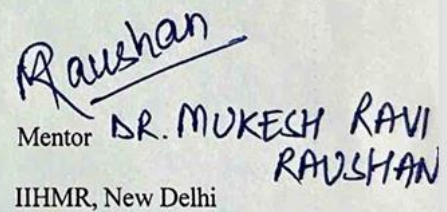 Raushan
Mentor DR. MUKESH RAVI
RAUSHAN
IIHMR, New Delhi